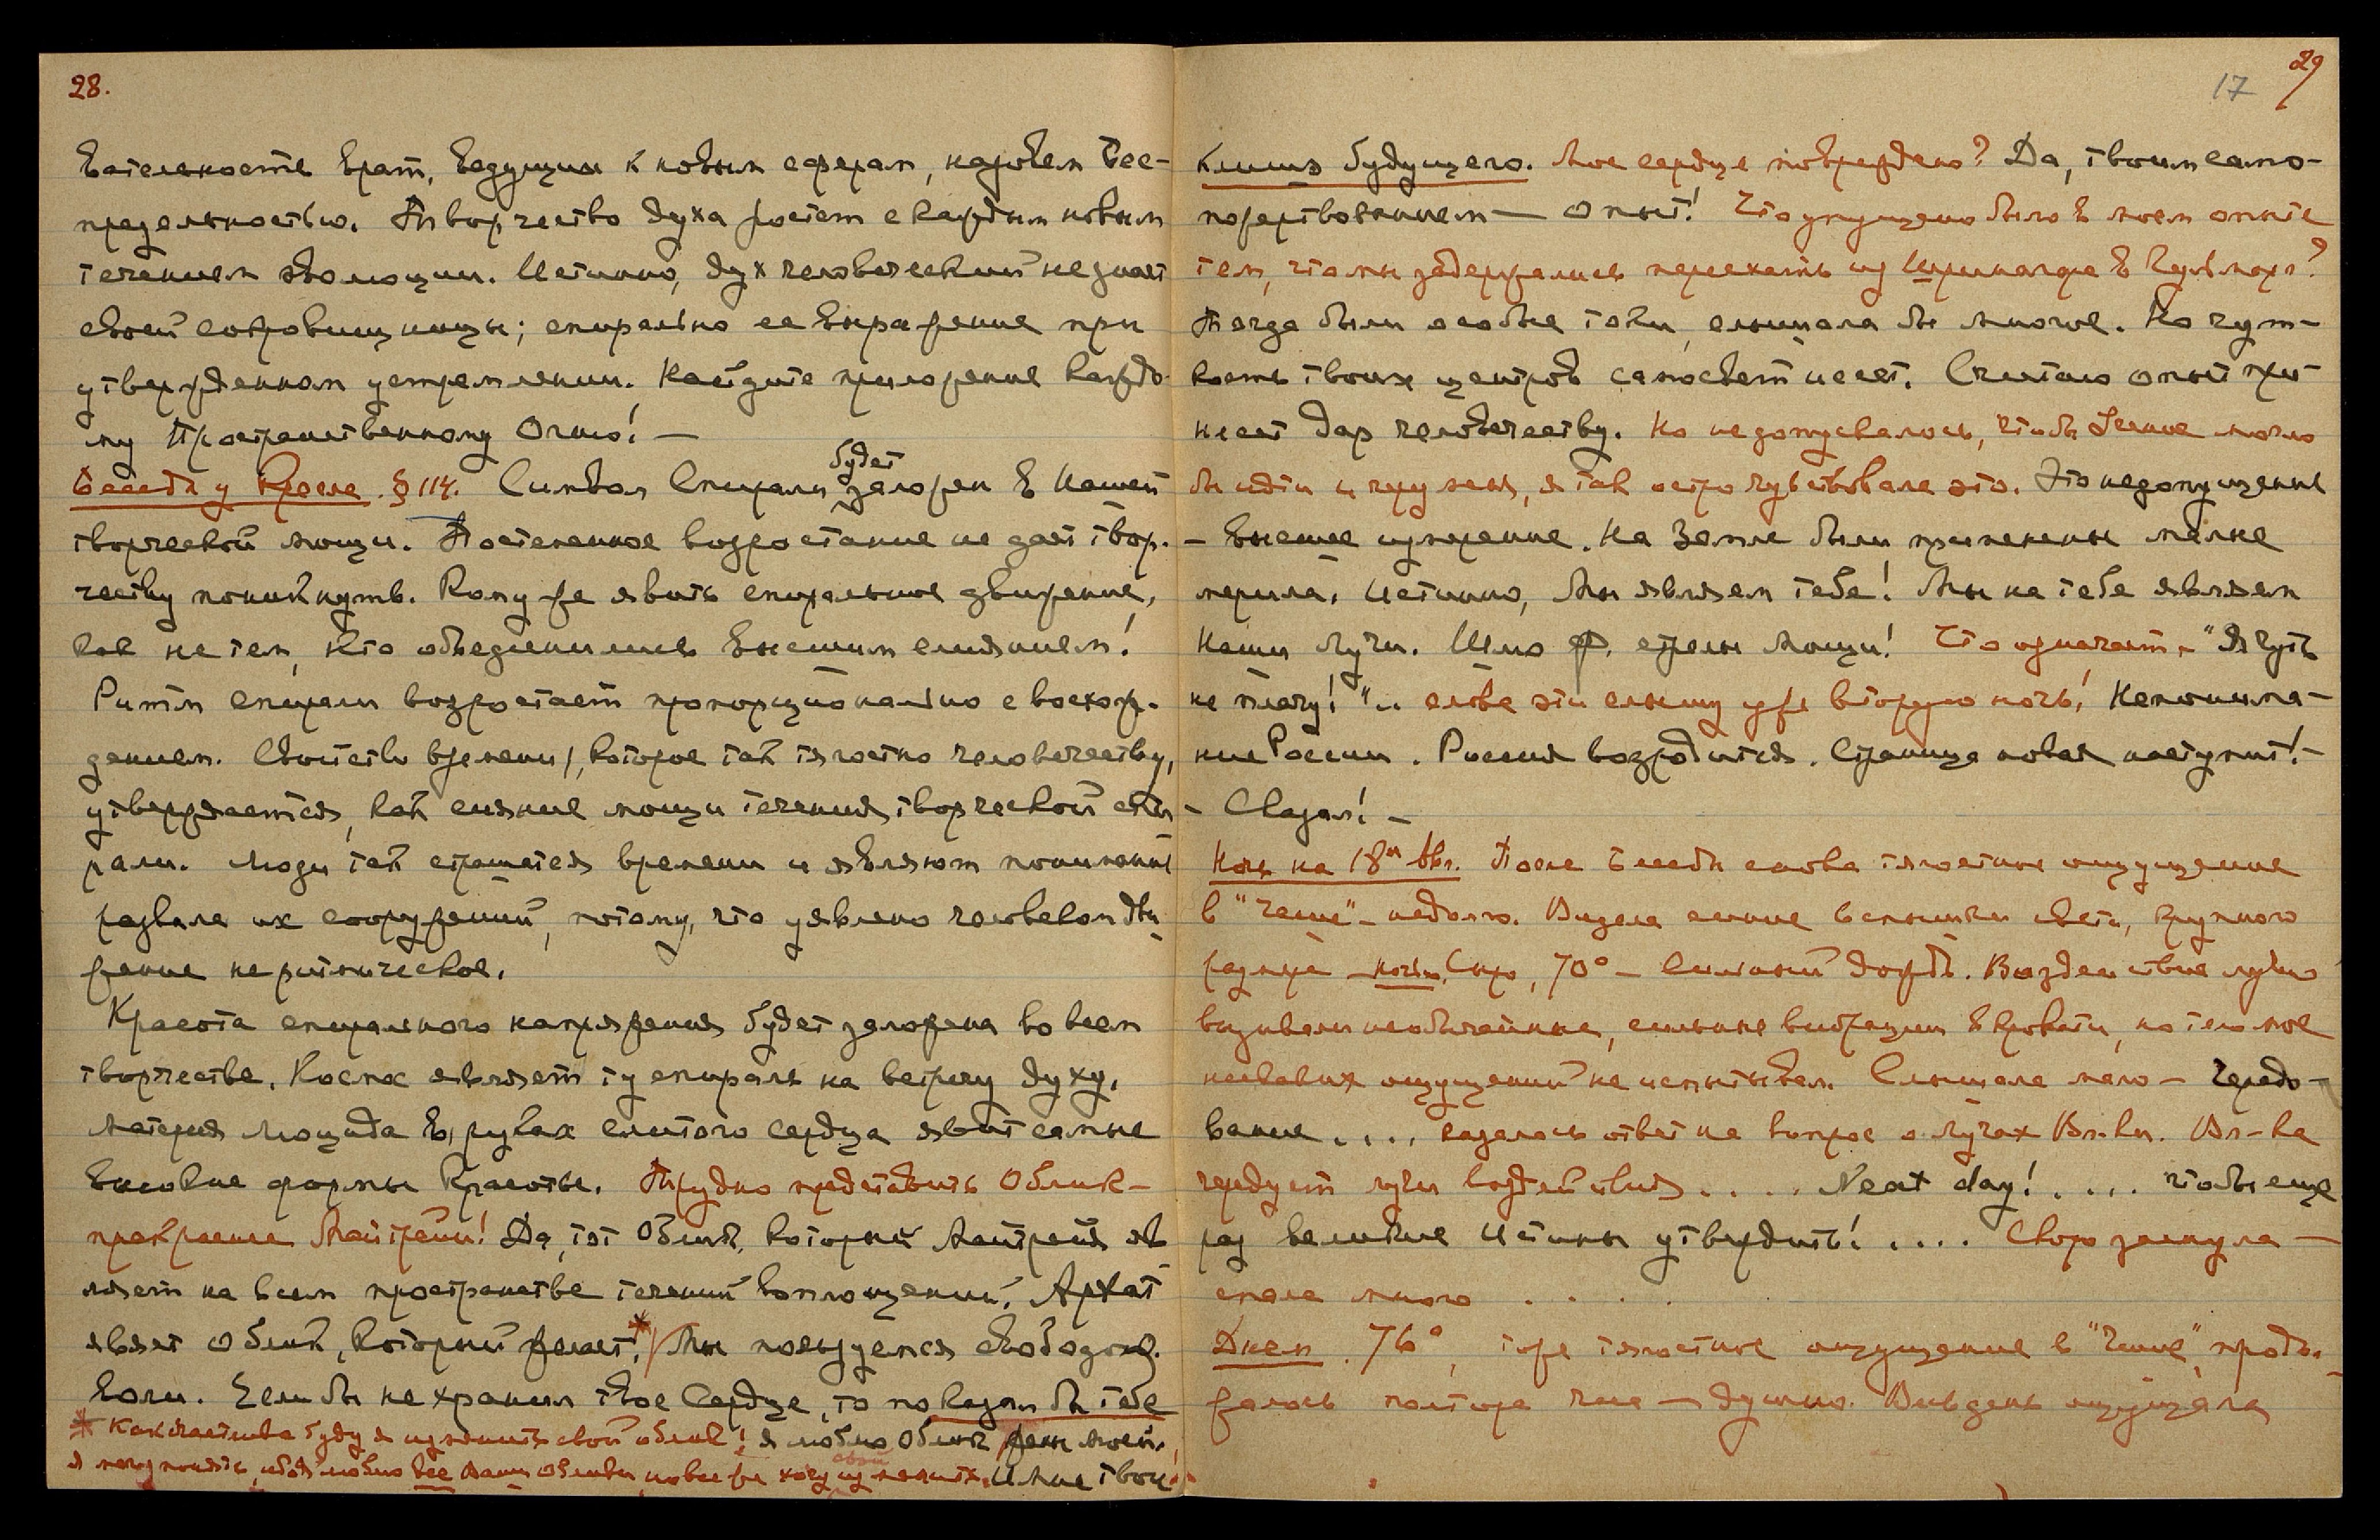 28.
вательность врат, ведущих к новым сферам, назовем Бес-
предельностью. Творчество духа растет с каждым новым
течением эволюции. Истинно, дух человеческий не знает
своей сокровищницы; спирально ее выражение при
утвержденном устремлении. Найдите приложение каждо-
му Пространственному Огню! —
Беседа у Кресла. § 114. Символ Спирали будет заложен в нашей
творческой мощи. Постепенное возростание не дает твор-
честву поникнуть. Кому же явить спиральное движение,
как не тем, кто объединились высшим слиянием!
Ритм спирали возростает пропорционально с восхож-
дением. Свойство времени, которое так тягостно человечеству,
утверждается, как сияние мощи течения творческой спи-
рали. Люди так страшатся времени и являют понимание
развала их сооружений, потому, что уявлено человеком дви-
жение неритмическое.
Красота спирального напряжения будет заложена во всем
творчестве. Космос являет ту спираль на встречу духу,
материя Люцида в руках слитого сердца явит самые
высокие формы Красоты. Трудно представить Облик
прекраснее Майтрейи! Да, тот Облик, который Майтрейя яв-
ляет на всем пространстве течений воплощений. Архат
являет Облик, который желает.* Мы пользуемся свободою
воли. Если бы не хранил твое Сердце, то показал бы тебе
* Как счастлива буду я изменить свой облик! Я люблю Облик жены моей.
Я могу понять, ибо я люблю все Ваши Облики, но все же хочу свой изменить. И Мне твои
17 29
клише будущего. Мое сердце повреждено? Да, твоим само-
пожертвованием — опыт! Что упущено было в моем опыте
тем, что мы задержались переехать из Шринагара в Гульмарг?
Тогда были особые токи, слышала бы многое. Но чут-
кость твоих центров самосвет несет. Считаю опыт при-
несет дар человечеству. Но не допускалось, чтобы Учение могло
бы идти и через меня, я так остро чувствовала это. Это недопущение
- высшее мучение. На Земле были применены малые
мерила. Истинно, Мы являем тебе! Мы на тебе являем
наши Лучи. Шлю Ф. стрелы мощи! Что означает — "Я чуть
не плачу!".. слова эти слышу уже вторую ночь! Непонима-
ние России. Россия возродится. Страница новая наступит! -
- Сказал! -
Ночь на 18ое Авг. После Беседы снова тягостное ощущение
в "Чаше" - недолго. Видела синие вспышки света, крупного
размера — ночью. Сыро, 70° — Сильный дождь. Воздействие лучей
вызывали необычайные, сильные вибрации в кровати, но тело мое
никаких ощущений не испытывало. Слышала мало — Чередо-
вание . . . . казалось ответ на вопрос о лучах Вл-ки. Вл-ка
чередует лучи воздействия . . . . Next day! . . . . чтобы еще
раз великие Истины утвердить! . . . . Скоро заснула —
спала много . . . .
Днем. 76°, тоже тягостное ощущение в "Чаше", продол-
жалось полтора часа — душно. Весь день ощущала